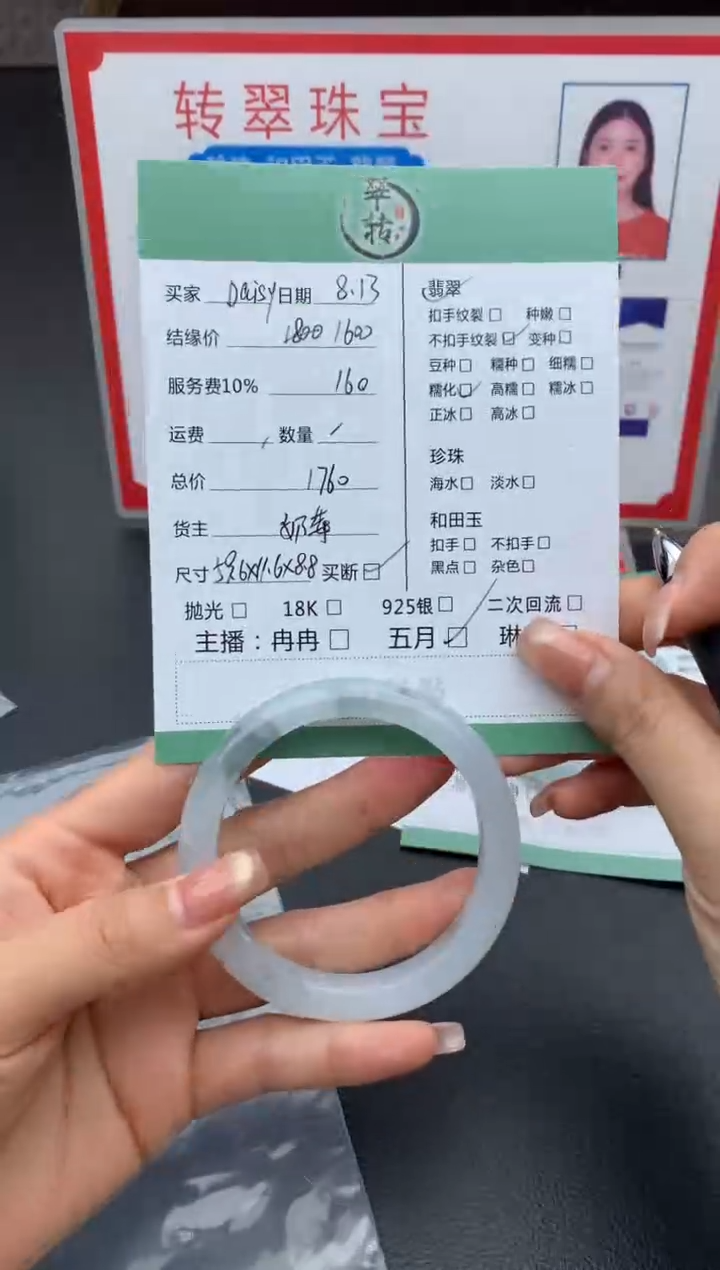 转翠珠宝
翠转
买家 Daisy 日期 8.13
结缘价 1800 1600
服务费10% 160
运费 数量
总价 1760
货主
尺寸 59.6X11.6X8.8 买断
翡翠
扣手纹裂 种嫩
不扣手纹裂 变种
豆种 糯种 细糯
糯化 高糯 糯冰
正冰 高冰
珍珠
海水 淡水
和田玉
扣手 不扣手
黑点 杂色
抛光 18K 925银 二次回流
主播：冉冉 五月 琳